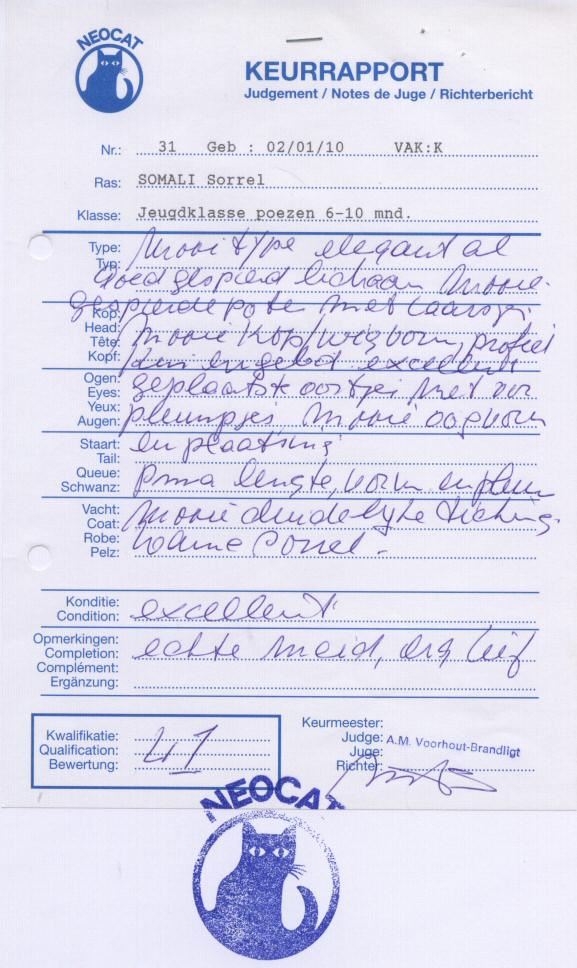 NEOCAT
KEURRAPPORT
Judgement / Notes de Juge / Richterbericht
Nr.: 31 Geb : 02/01/10 VAK:K
Ras: SOMALI Sorrel
Klasse: Jeugdklasse poezen 6-10 mnd.
Type: Mooi type elegant al
Typ: goed gespierd lichaam mooie
gespierde poten met laarsjes
Kop:
Head: mooie kop/wigvorm, profiel
Tête:
Kopf: kin en gebit excellent
Ogen: geplaatste oortjes met oor
Eyes:
Yeux: pluimpjes, mooie oogvorm
Augen:
Staart: en plaatsing
Tail:
Queue: prima lengte, vorm en pluim
Schwanz:
Vacht: mooie duidelijke ticking
Coat:
Robe: warme Sorrel.
Pelz:
Konditie: excellent
Condition:
Opmerkingen: echte meid, erg lief
Completion:
Complément:
Ergänzung:
Kwalifikatie:
Qualification: U1
Bewertung:
Keurmeester:
Judge: A.M. Voorhout-Brandligt
Juge:
Richter:
NEOCAT